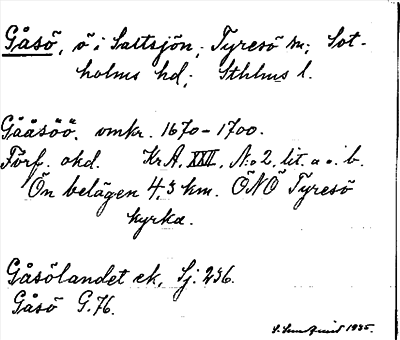 Gåsö, ö i Saltsjön, Tyresö sn; Sot-
holms hd; Sthlms l.
Gååsöö. omkr. 1670-1700.
Förf. okd. Kr A, XXII, N:o 2, lit. a o. b.
Ön belägen 4,3 km. ÖNÖ Tyresö
kyrka.
Gåsölandet ek, Sj. 236.
Gåsö G. 76.
1935.